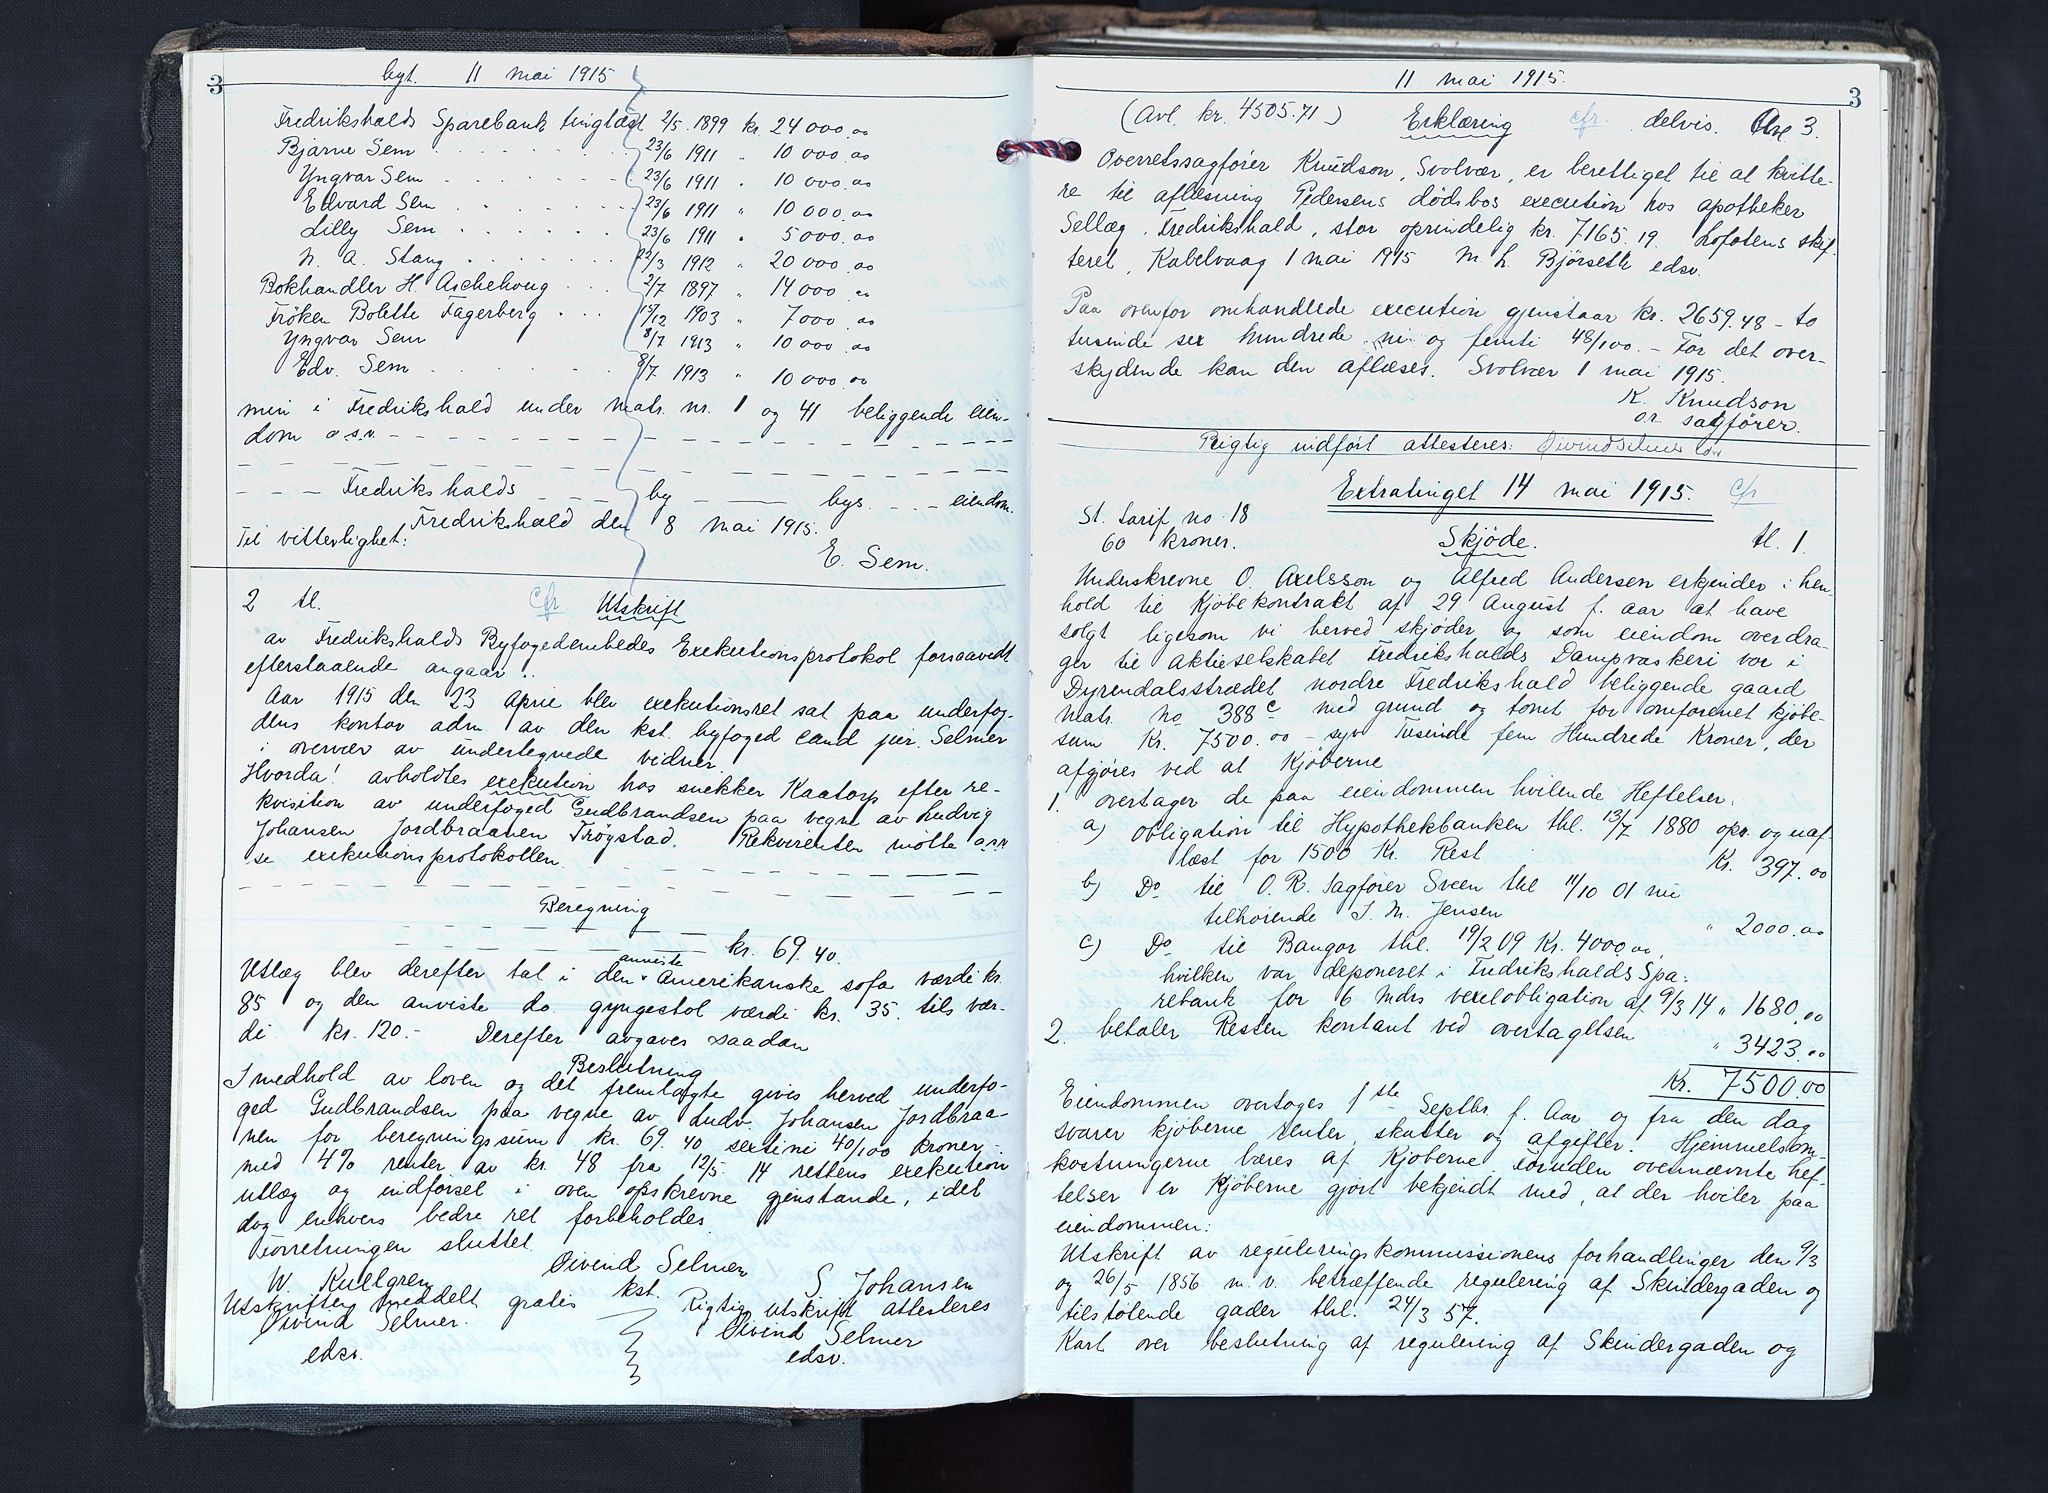 3
byt. 11 mai 1915
Fredrikshalds Sparebank tinglæst 2/5 1899 kr. 24 000.00
Bjarne Sem 23/6 1911 " 10 000.00
Yngvar Sem 23/6 1911 " 10 000.00
Edvard Sem 23/6 1911 " 10 000.00
Lilly Sem 23/6 1911 " 5 000.00
N. A. Stang /3 1912 " 20 000.00
Bokhandler H. Aschehoug 2/7 1897 " 14 000.00
Fröken Bolette Fagerberg /12 1903 " 7 000.00
Yngvar Sem 8/7 1913 " 10 000.00
Edv. Sem 8/7 1913 " 10 000.00
min i Fredrikshald under matr. nr. 1 og 41 beliggende eien-
dom o.s.v. - - -
- - - Fredrikshalds - - - by - - - bys. - - - eiendom.
Fredrikshald den 8 mai 1915.
Til vitterlighet:
E. Sem.
2 tl. cfr Utskrift
av Fredrikshalds Byfogedembedes Exekutionsprotokol forsaavidt
efterstaaende angaar:
Aar 1915 den 23 april blev exekutionsret sat paa underfog-
dens kontor adm av den kst. byfoged cand jur. Selmer
i overvær av undertegnede vidner
Hvorda! avholdtes exekution hos snekker Kaatorp efter re-
kvisition av underfoged Gudbrandsen paa vegne av Ludvig
Johansen Jordbraaten Trögstad. Rekvirenten mötte o.s.v.
se exekutionsprotokollen.
Beregning
- - - kr. 69.40.
anviste
Utlæg blev derefter tat i den Amerikanske sofa værdi kr.
85 og den anviste do gyngestol værdi kr. 35. tils vær-
di kr. 120.- Derefter avgaves saadan
Beslutning
I medhold av loven og det fremlagte gives herved underfo-
ged Gudbrandsen paa vegne av Ludv. Johansen Jordbraa-
nen for beregningssum kr. 69.40 sextini 40/100 kroner -
med 4% renter av kr. 48 fra 12/5 14 rettens exekution
utlæg og indförsel i oven opskrevne gjenstande, idet
dog enhvers bedre ret forbeholdes.
Forretningen sluttet.
Øivind Selmer
kst.
W. Kullgren S. Johansen
Utskriften meddelt gratis Rigtig utskrift attesteres
Øivind Selmer. Øivind Selmer
edsv. edsv.
11 mai 1915.
3
(Avl. kr. 4505.71) Erklæring cfr. delvis. 3.
Overretssagförer Knudson, Svolvær, er berettiget til at kvitte-
re til aflæsning Pedersens dödsbos execution hos apotheker
Sellæg, Fredrikshald, stor oprindelig kr. 7165.19. Lofotens skif-
teret, Kabelvaag 1 mai 1915 M. L. Björseth edsv.
Paa ovenfor omhandlede execution gjenstaar kr. 2659.48 - to
tusinde sex hundrede ni og femti 48/100. - For det over-
skydende kan den aflæses. Svolvær 1 mai 1915.
K. Knudson
or. sagförer.
Rigtig indfört attesteres: Øivind Selmer edsv
Extratinget 14 mai 1915. cfr.
St. tarif no. 18
60 kroner. Skjöde. tl. 1.
Underskrevne O. Axelsson og Alfred Andersen erkjender i hen-
hold til Kjöbekontrakt af 29 August f. aar at have
solgt ligesom vi herved skjöder og som eiendom overdra-
ger til Aktieselskabet Fredrikshalds Dampvaskeri vor i
Dyrendalsstrædet nordre Fredrikshald beliggende gaard
matr. no 388 c med grund og tomt for omforenet kjöbe-
sum Kr. 7500.00 - syv Tusinde fem Hundrede Kroner, der
afgjöres ved at Kjöberne
1. overtager de paa eiendommen hvilende Heftelser.
a) obligation til Hypothekbanken thl. 13/7 1880 opr. og uaf
læst for 1500 Kr. Rest Kr. 397.00
b) Do til O. R. Sagförer Sveen thl 11/10 01 nu
tilhörende I. M. Jensen " 2000.00
c) Do til Bangor thl. 19/2 09 Kr. 4000.00,
hvilken var deponeret i Fredrikshalds Spa-
rebank for 6 mdrs vexelobligation af 9/3 14 " 1680.00
2. betaler Resten kontant ved overtagelsen " 3423.00
Kr. 7500.00
Eiendommen overtoges 1ste Septbr. f. Aar og fra den dag
svarer kjöberne renter, skatter og afgifter. Hjemmelsom-
kostningerne bæres af Kjöberne. Foruden ovennævnte hef-
telser er Kjöberne gjort bekjendt med, at der hviler paa
eiendommen:
Utskrift av reguleringskommissionens forhandlinger den 9/3
og 26/5 1856 m. v. betræffende regulering af Skindergaden og
tilstötende gader thl. 24/3 57.
Kart over beslutning af regulering af Skindergaden og